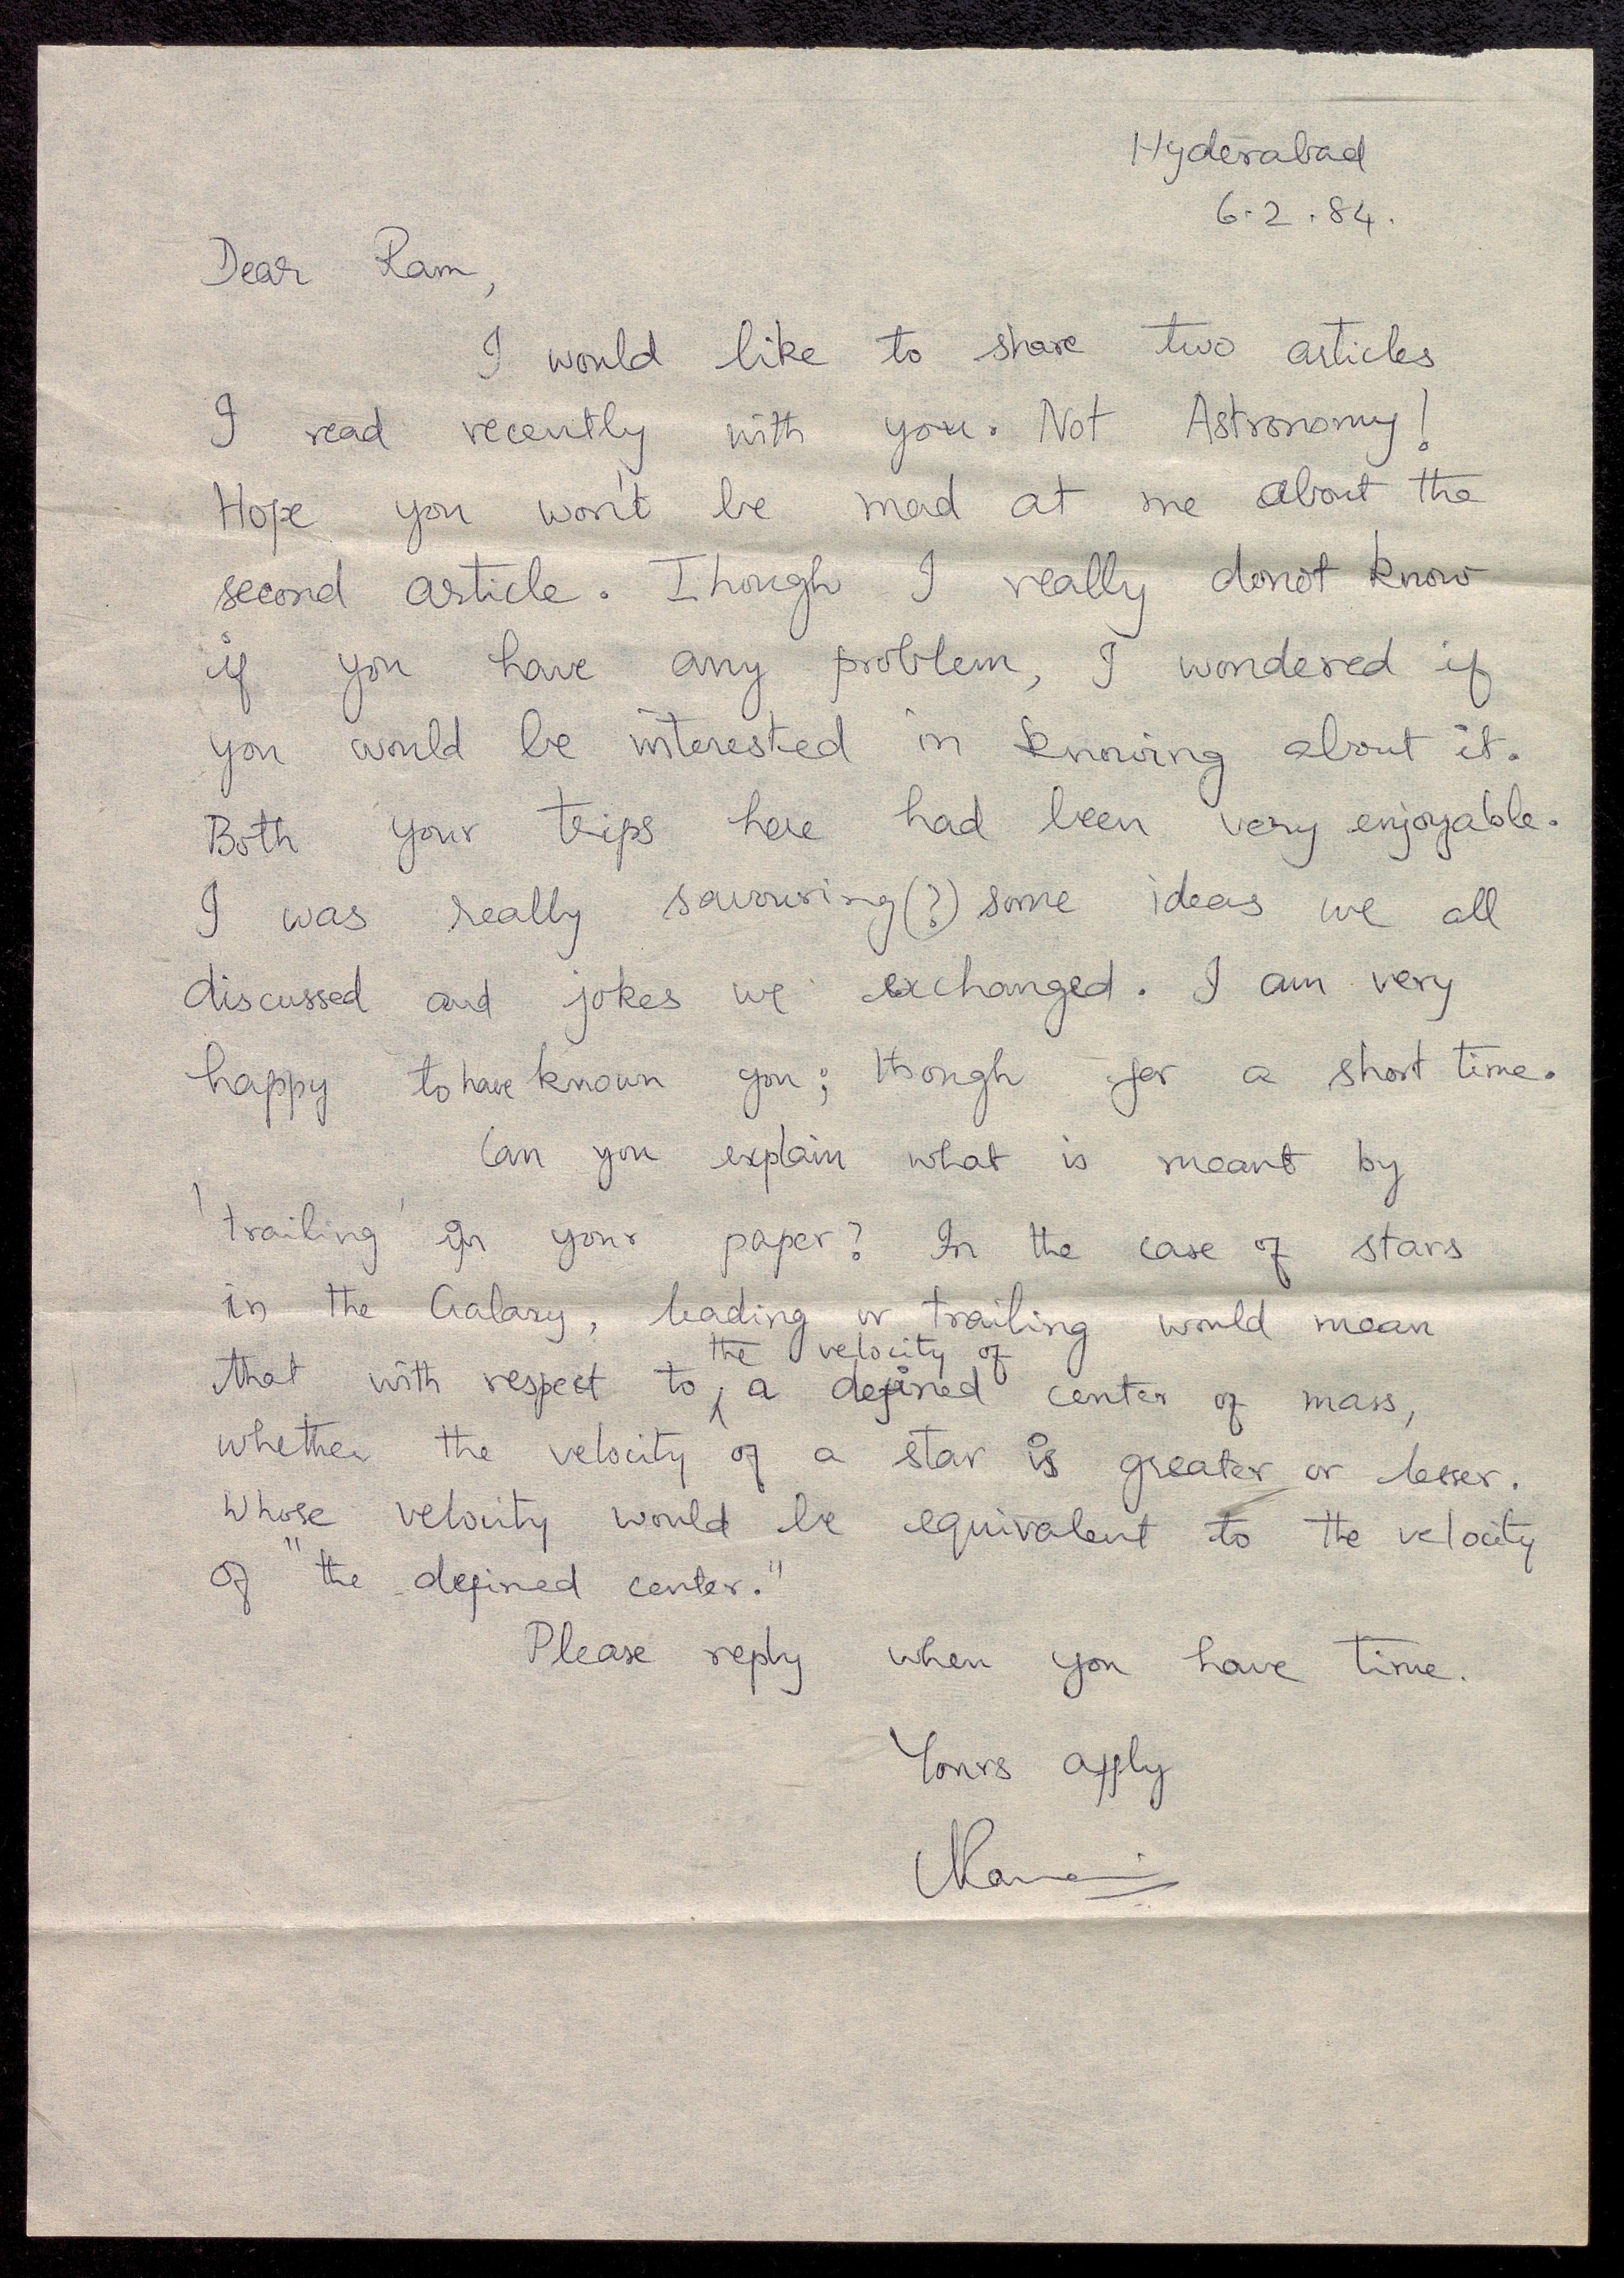 Hyderabad
6.2.84.
Dear Ram,
I would like to share two articles
I read recently with you. Not Astronomy!
Hope you won't be mad at me about the
second article. Though I really donot know
if you have any problem, I wondered if
you would be interested in knowing about it.
Both your trips here had been very enjoyable.
I was really savouring(?) some ideas we all
discussed and jokes we exchanged. I am very
happy to have known you; though for a short time.
Can you explain what is meant by
'trailing' in your paper? In the case of stars
in the Galaxy, leading or trailing would mean
the velocity of
that with respect to a defined center of mass,
whether the velocity of a star is greater or lesser.
Whose velocity would be equivalent to the velocity
of "the defined center."
Please reply when you have time.
Yours affly